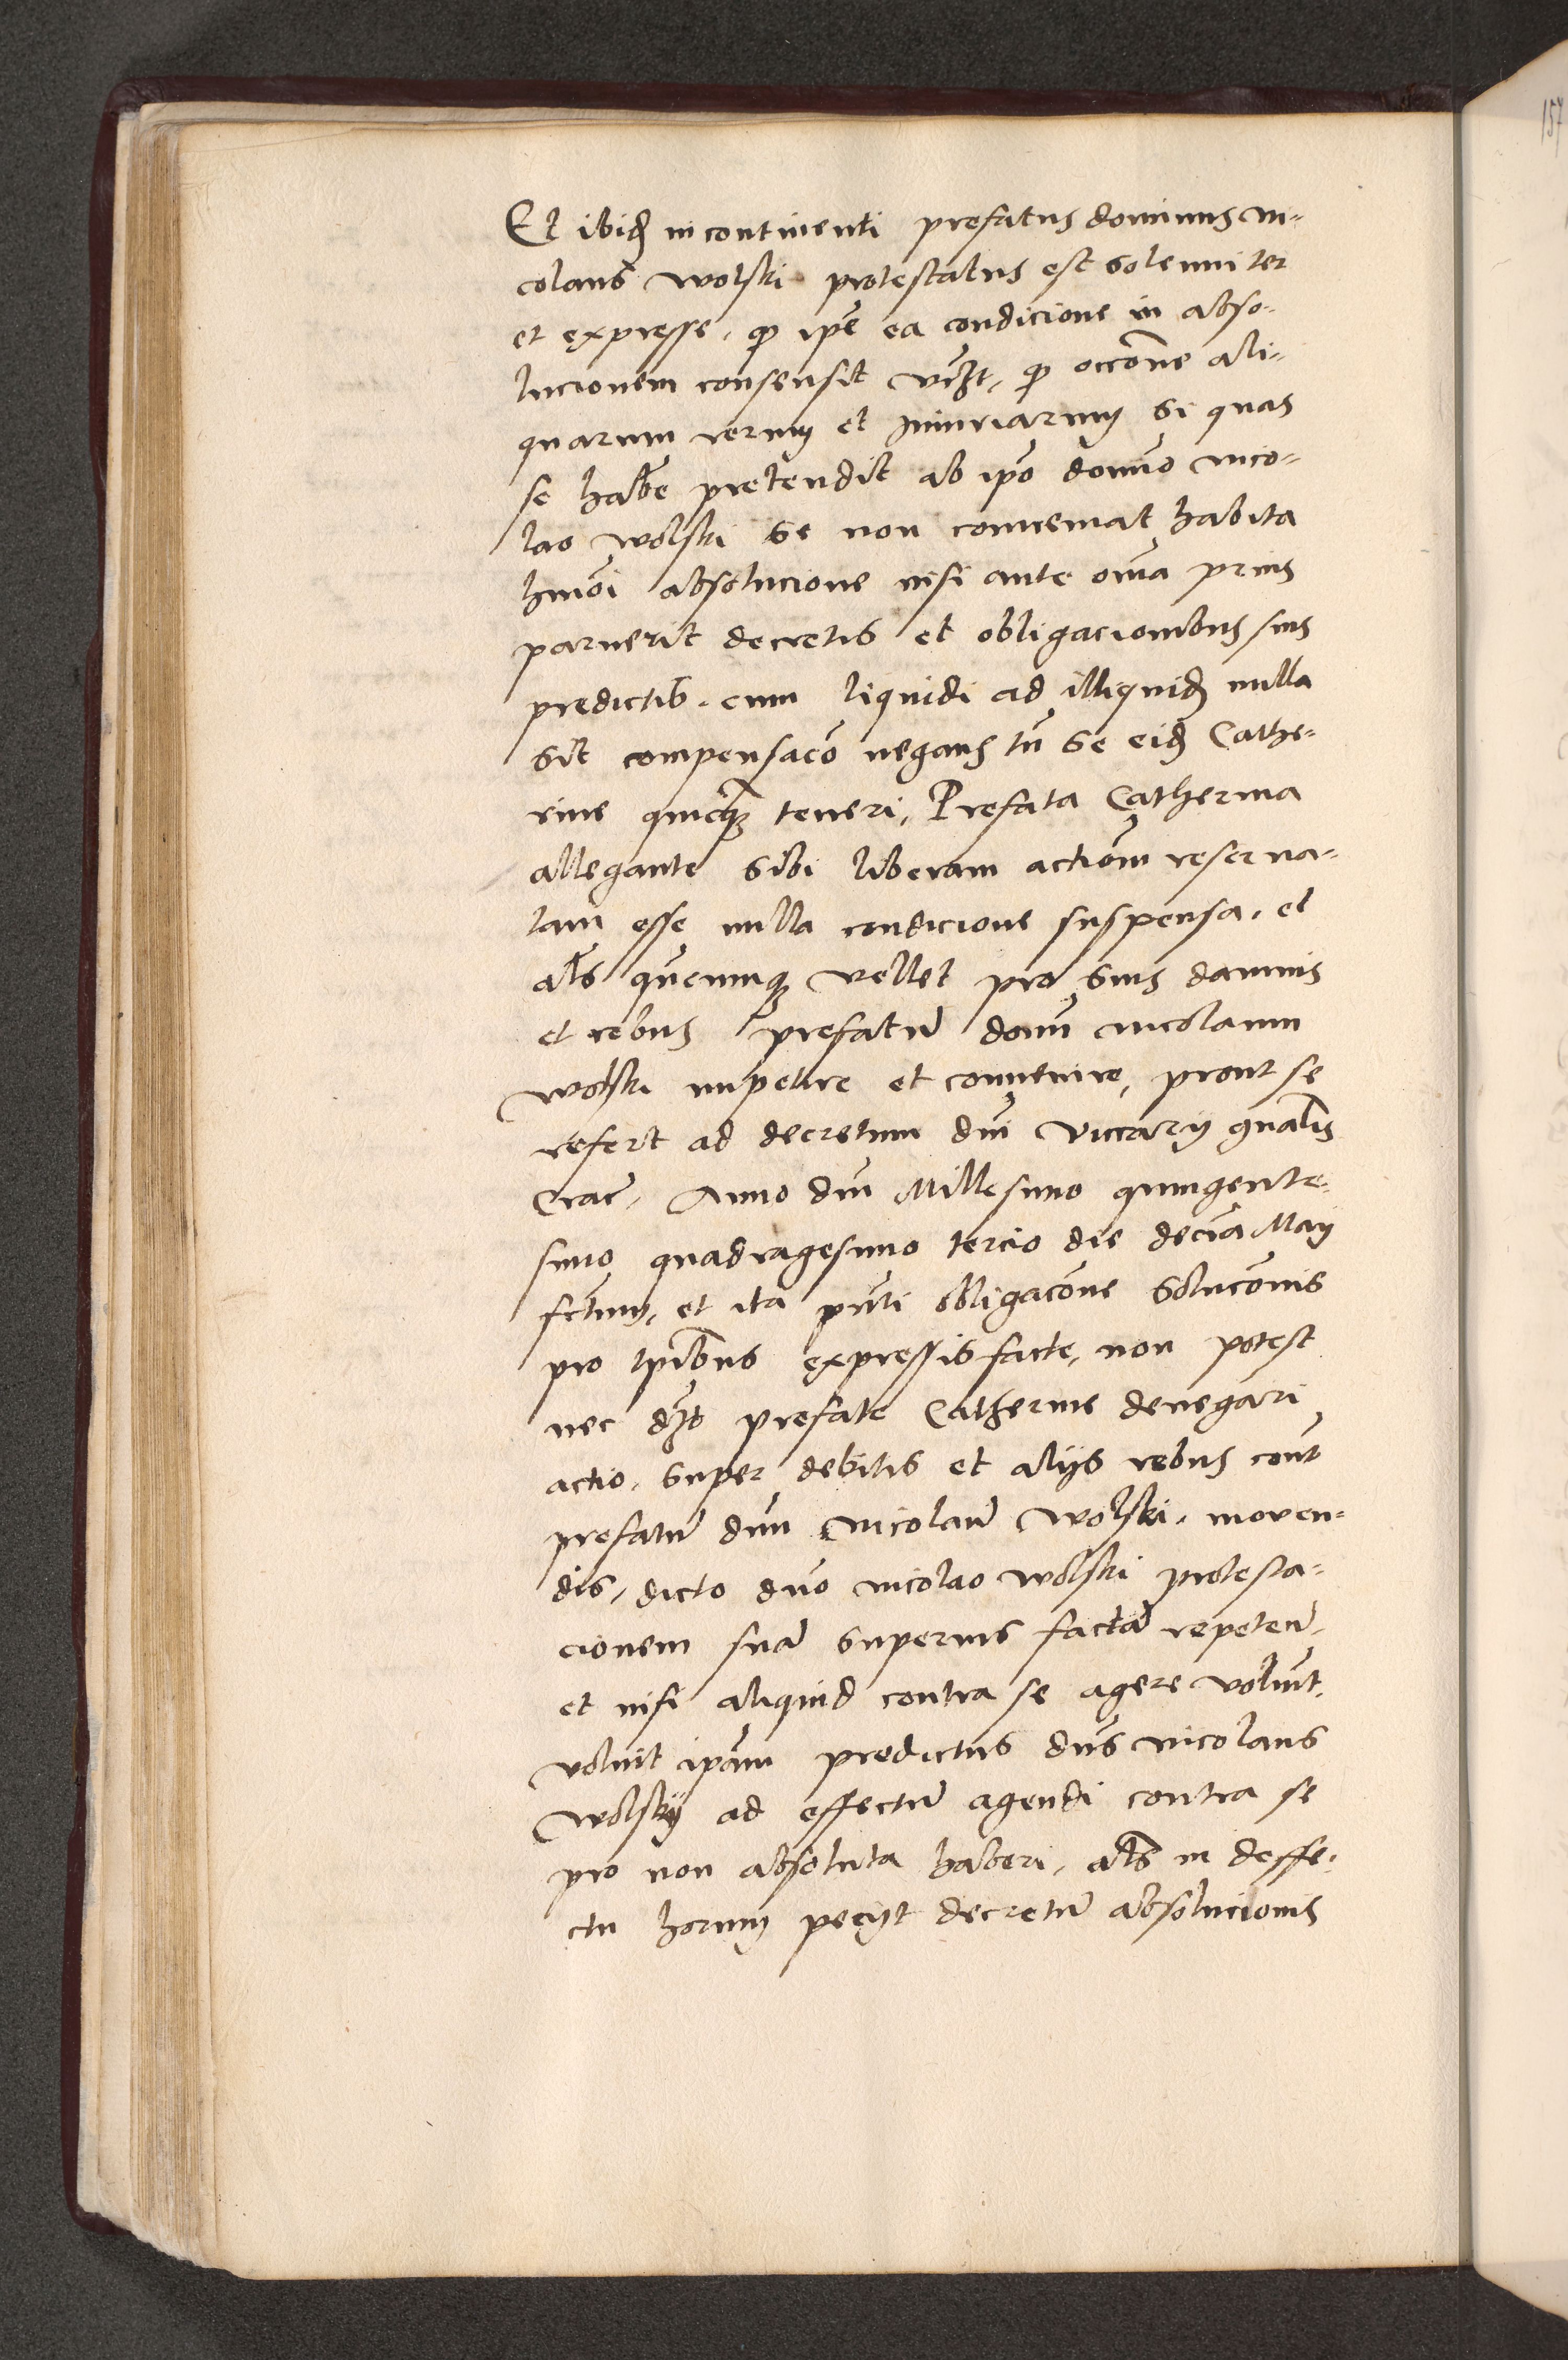 Et ibid in continenti prefatus dominus Ni-
colaus Wolski protestatus est solenniter
et expresse, qp ipe ea condicione in abso-
lucionem consensit vczt, qp occone ali-
quarum rerum et iniuriarum si quas
se habe pretendit ab ipo domno Nico-
lao Wolski se non conueniat habita
hmoi absolucione nisi ante oma prius
paruerit decretis et obligacionibus suis
predictis. cum liquidi ad illiquid nulla
sit compensaco negans tn se eid Cathe-
rine quicqz teneri, Prefata Catherina
allegante sibi liberam actiom reserua-
tam esse nulla condicione suspensa, et
als quemuqz vellet pro suis damnis
et rebus prefatu domi Nicolaum
Wolski impetire et conuenire, prout se
refert ad decretum dni Viccarij gnalis
Crac, Anno dni Millesimo quingente-
simo quadragesimo tercio die decia Maij
fctum, et ita pnti obligacone solucionis
pro tpibus expressis facte, non potest
nec dzt prefate Catherine denegari
actio, super debitis et alijs rebus cont
prefatu dnu Nicolau Wolski, moven-
dis, dicto dno Nicolao Wolski protesta-
cionem sua superius facta repeten,
et nisi aliquid contra se agere volunt,
voluit ipam predictus dns Nicolaus
Wolskij ad effectu agendi contra se
pro non absoluta haberi, als in deffe-
ctu horum pecijt decretu absolucionis
157